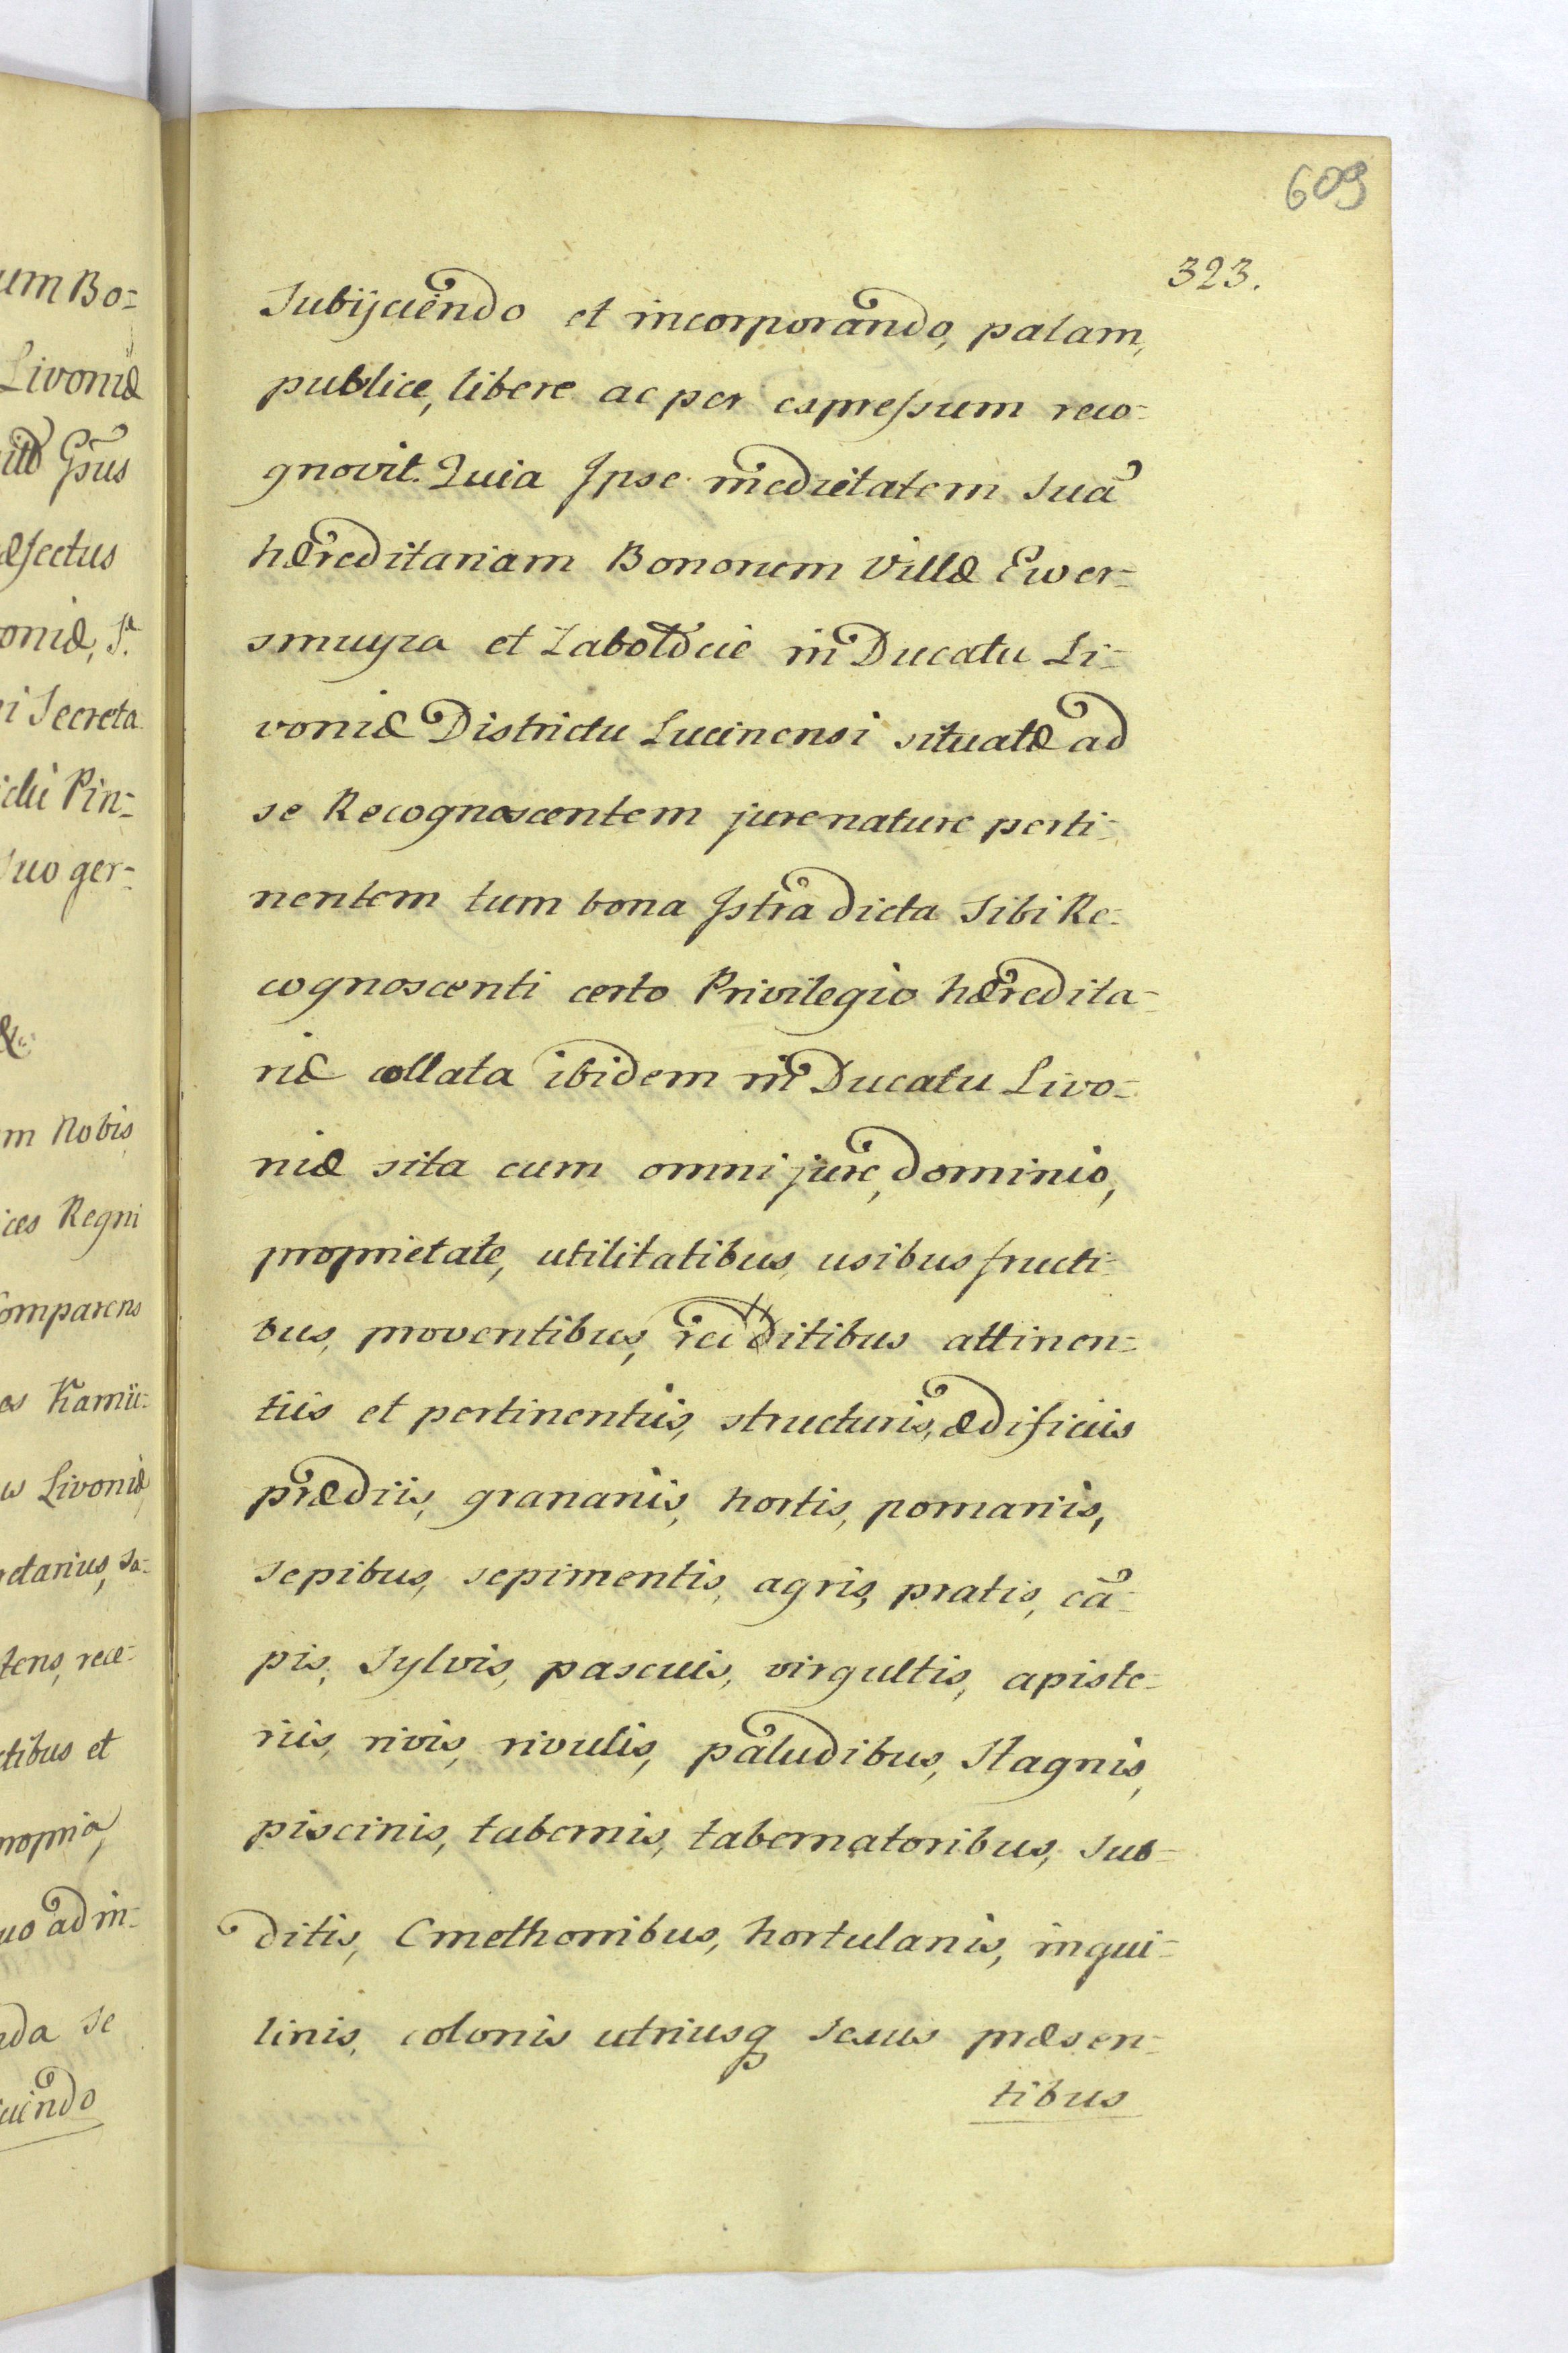 609
323.
Subijciendo et incorporando, palam,
publice, libere ac per expressum reco-
gnovit. Quia Ipse medietatem suã
hæreditariam Bonorum Villæ Ewer-
smuyza et Zaboldcie in Ducatu Li-
voniæ Districtu Lucinensi situatæ ad
se Recognoscentem jure nature perti-
nentem tum bona Istra dicta Sibi Re-
cognoscenti certo Privilegio hæredita-
riæ collata ibidem in Ducatu Livo-
niæ sita cum omni jure, dominio,
proprietate, utilitatibus, usibus fructi-
bus, proventibus, redditibus attinen-
tiis et pertinentiis, structuris, ædificiis
prædiis, granariis, hortis, pomariis,
sepibus, sepimentis, agris, pratis, cã-
pis, Sylvis, pascuis, virgultis, apiste-
riis, rivis, rivulis, paludibus, Stagnis,
piscinis, tabernis, tabernatoribus, sub-
ditis, Cmethonibus, hortulanis, inqui-
linis, colonis utriusq sexus præsen-
tibus
um Bo-
Livoniæ
oniæ, S.
i Secreta
Pin-
suo ger-
&c
m Nobis
Regni
comparens
Livoniæ
etarius, sa-
tibus et
uo ad in-
se